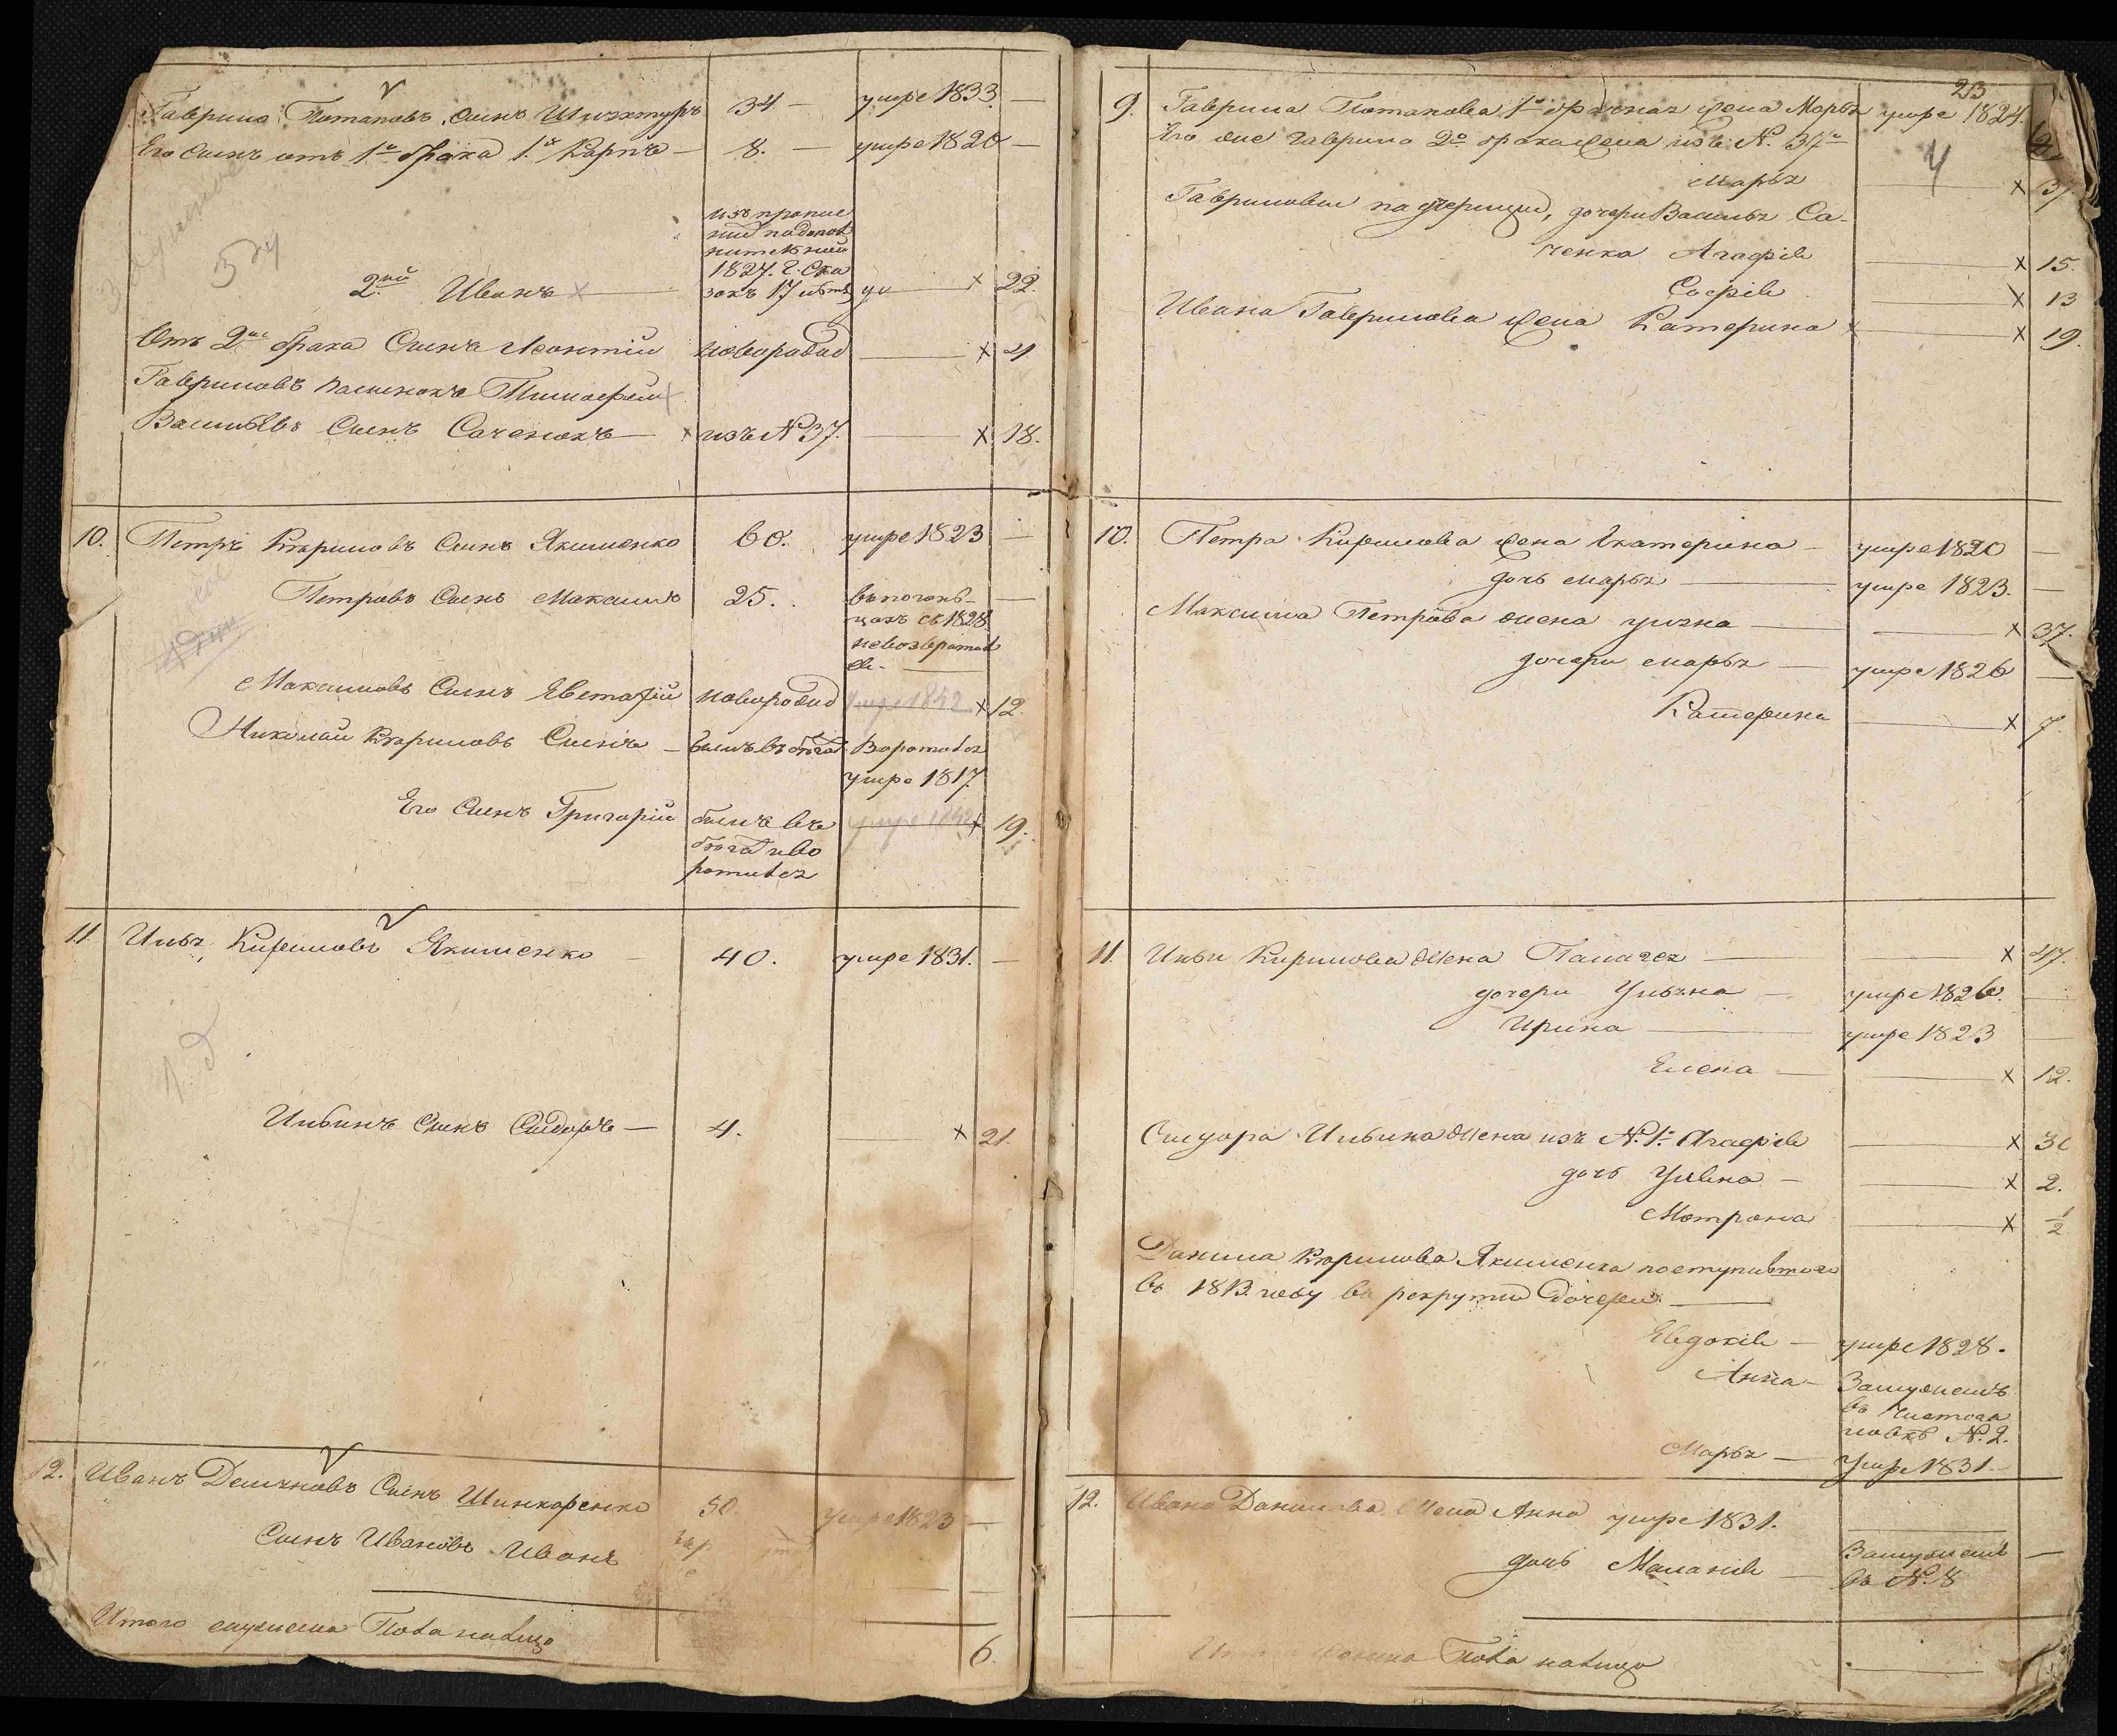 Гаврило Потаповъ сынъ 34 — умре 1833 —
Его сынъ отъ 1го брака 1й Карпъ — 8. — умре 1820 —
изъ пропис
1827. г. Ска
2й Иванъ — зокъ 17 лѣтъ — х 22.
Отъ 2го брака Сынъ Леонтій новорожд — х 4
Гавриловъ пасынокъ Тимофей
Васильевъ Сынъ Саченокъ — изъ № 37. — х 18.
10. Петръ Кириловъ Сынъ Якименко 60. умре 1823 —
Петровъ Сынъ Максимъ 25. —
съ 1828
невозвратил
ся. —
Максимовъ Сынъ Евстафій новорожд умре 1842 х 12.
Николай Кириловъ Сынъ — былъ въ бѣгах Воротился
умре 1817.
Его Сынъ Григорій былъ въ умре 1842 х 19.
бѣгах и во
ротился
11. Илья Кириловъ Якименко — 40. умре 1831. —
Ильинъ Сынъ Сидоръ — 4. — х 21.
12. Иванъ Сынъ Шинкаренко 50 умре 1823 —
Сынъ Ивановъ Иванъ
Итого мужеска Пола налицо 6.
23
9. Гаврила Потапова 1го брака жена Марья умре 1824.
Его же Гаврила 2го брака жена изъ № 37го
Марья — х 37.
4
Гавриловы падчерицы, дочери Василья Са-
ченка Агафія — х 15.
Софія — х 13
Ивана Гаврилова жена Катерина — х 19.
10. Петра Кирилова жена Екатерина — умре 1820 —
дочь Марья — умре 1823. —
Максима Петрова жена — х 37.
дочери Марья — умре 1826 —
Катерина — х 7.
11. Ильи Кирилова жена Палагея — х 47.
дочери Ульяна — умре 1826. —
Ирина — умре 1823 —
Елена — х 12.
Сидора Ильина жена изъ № 1. Агафія — х
дочь — х 2.
Мотрона — х ½
Данила Кирилова Якименка поступившаго
въ 1813. году въ рекруты Дочери —
Евдокія — умре 1828.
Анна — Замужемъ
въ
№ 2.
Марья — умре 1831. —
12. Ивана Данилова жена Анна умре 1831.
дочь Маланія — Замужемъ —
въ № 8
Итого женска Пола налицо